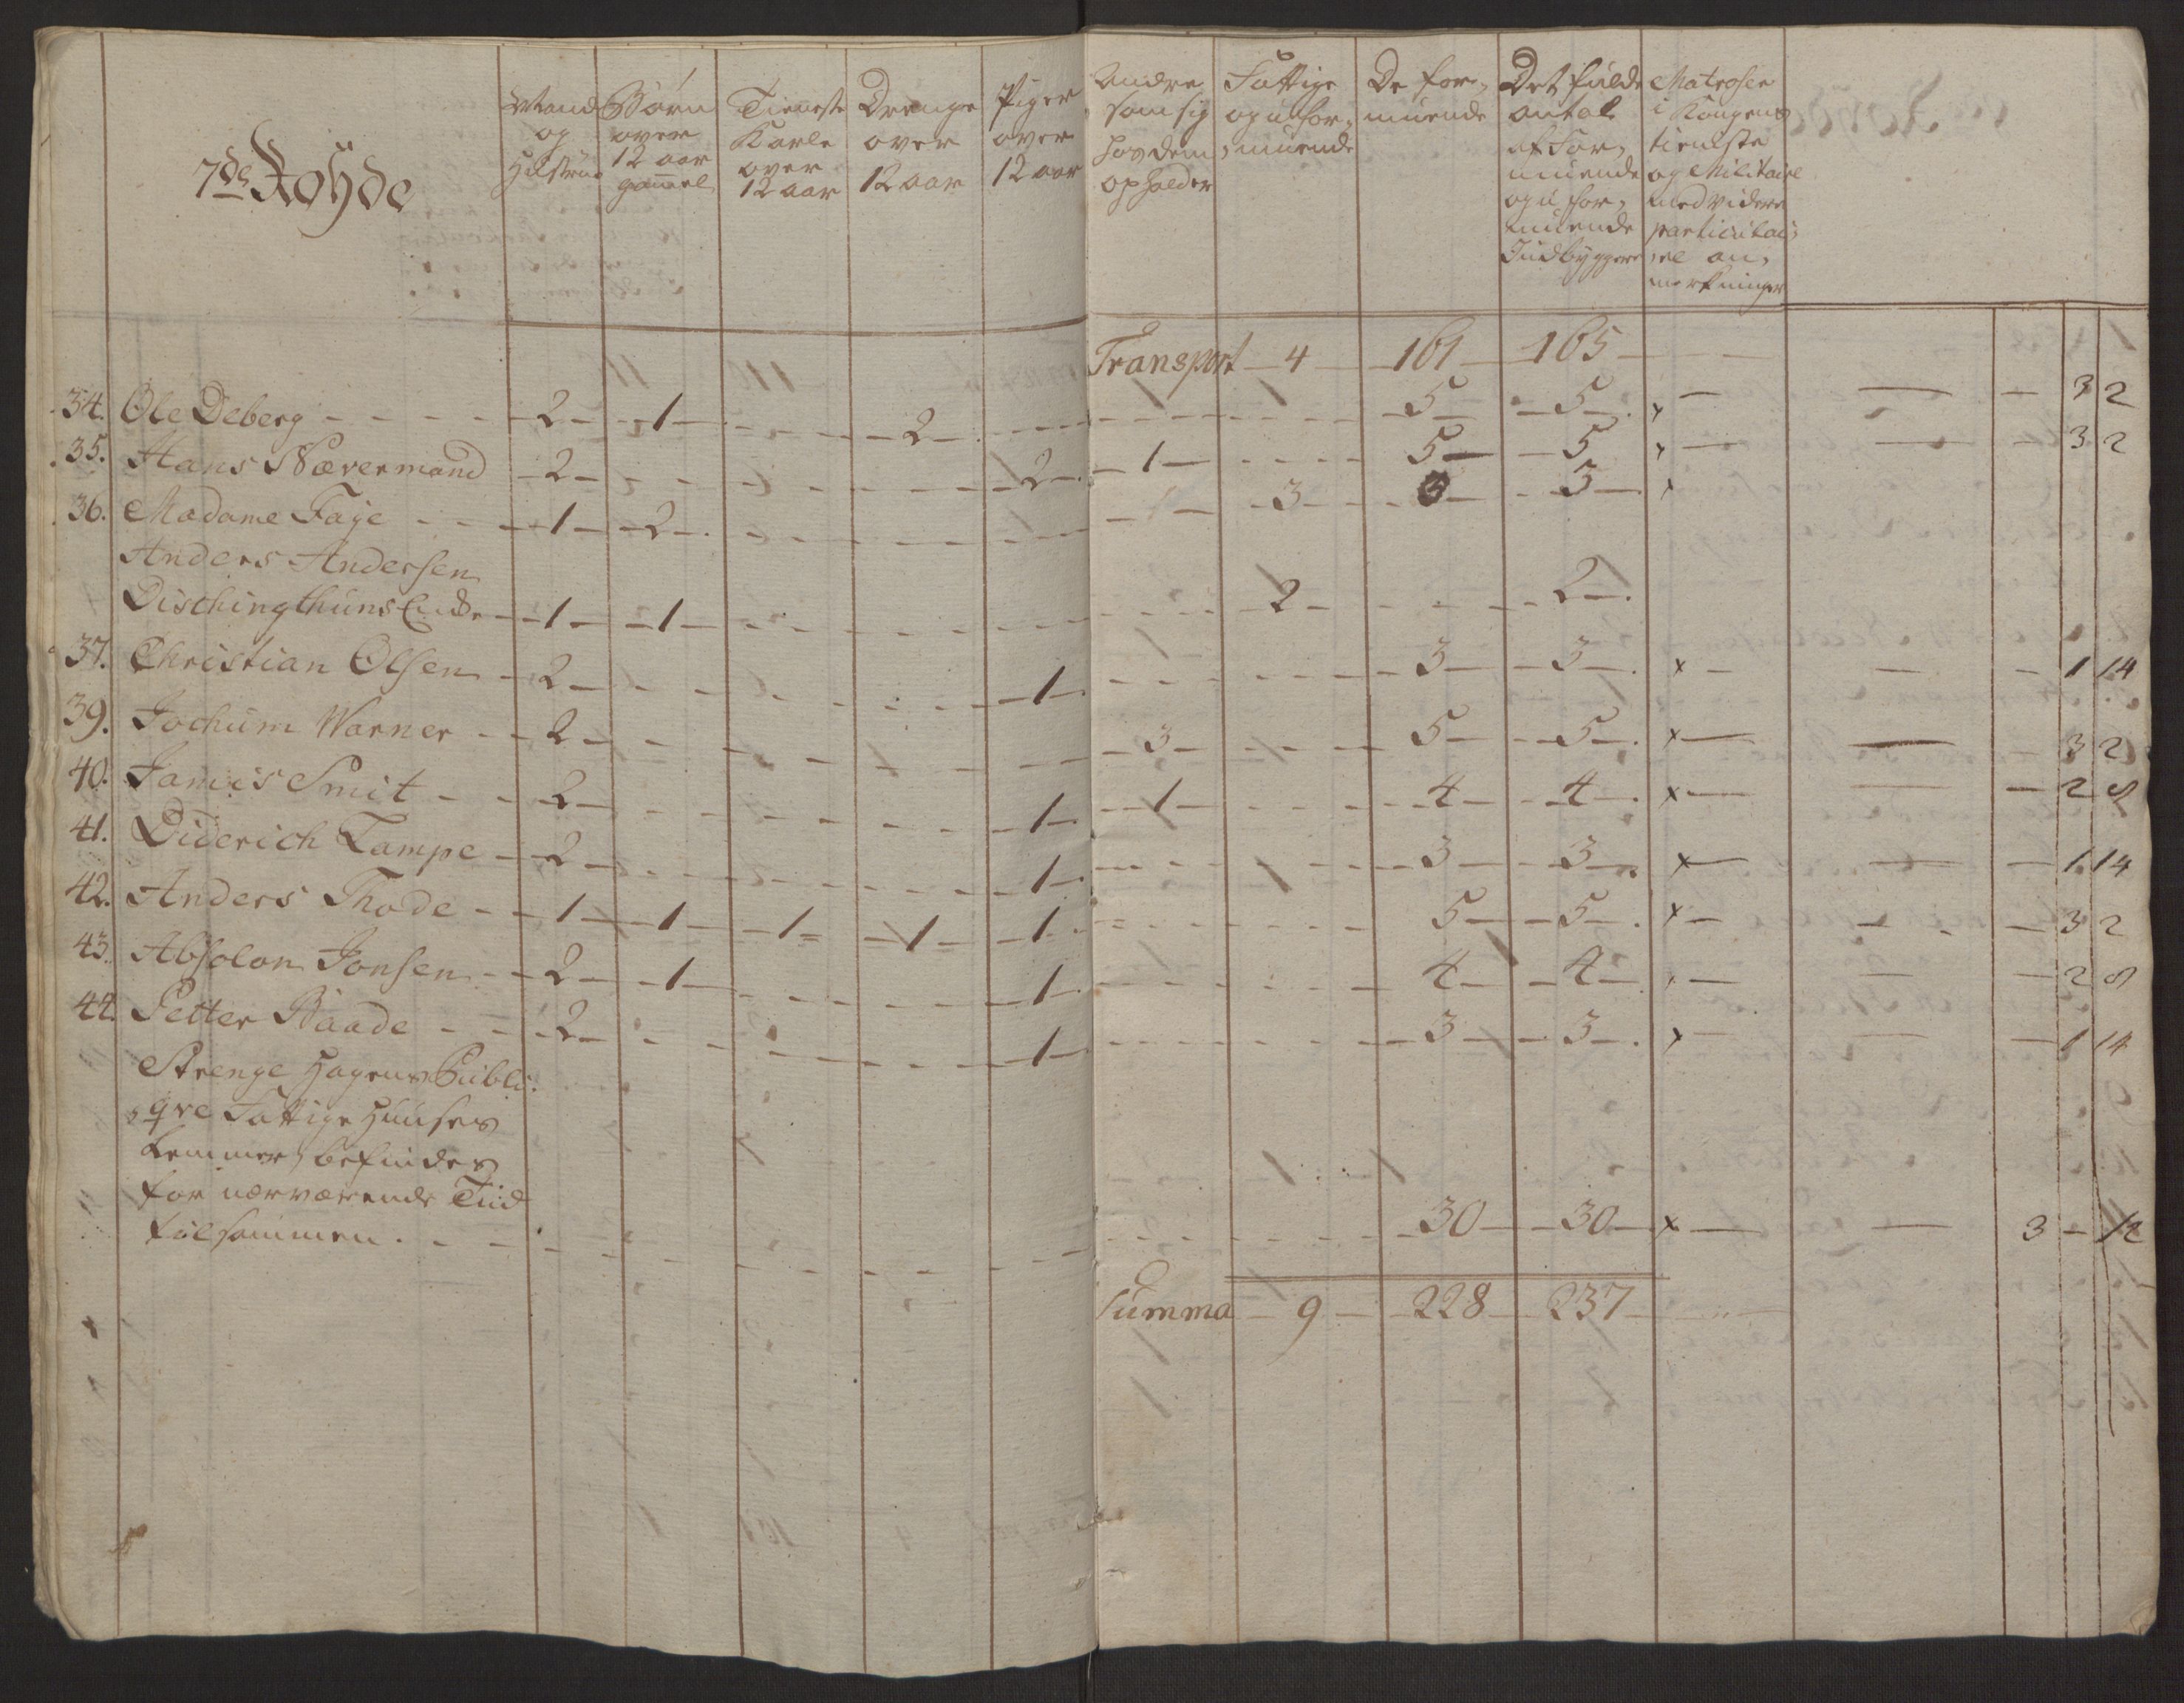 7de Röyde
Mand og Hustrue
Børn over 12 aar gammel
Tieneste Karle over 12 aar
Drenge over 12 aar
Piger over 12 aar
Andre som sig hos dem opholder
Fattige og ufor, muende
De for, muende
Det fulde antal af For, muende og ufor, muende Indbyggere
Matroser i Kongens tieneste og Militaire med videre particulai, re an, merkninger
Transport - 4 - 161 - 165 -
34. Ole Deberg - - - - 2 - 1 - - - - 2 - - - - - - 5 - 5 - x - - - 3 2
35. Hans Nævermand - 2 - - - - - - 2 - 1 - - - 5 - 5 - x - - - 3 2
36. Madame Faye - - - 1 - 2 - - - - - - - - 3 - - 3 - x
Anders Andersen
Dischingthuns Encke - 1 - 1 - - - - - - - 2 - - - 2 -
37. Christian Olsen - 2 - - - - - 1 - - - - 3 - 3 - x - - - 1 14
39. Jochum Warner - - 2 - - - - - - 3 - - - 5 - 5 - x - - - 3 2
40. Jamis Smit - - 2 - - - - - 1 - 1 - - - 4 - 4 - x - - - 2 8
41. Diderich Lampe - 2 - - - - - 1 - - - - 3 - 3 - x - - - 1 14
42. Anders Thode - - 1 - 1 - 1 - 1 - 1 - - - - 5 - 5 - x - - - 3 2
43. Absolon Jonsen - - 2 - 1 - - - - 1 - - - - 4 - 4 - - - - 2 8
44. Petter Baade - - - 2 - - - - - 1 - - - - 3 - 3 - x - - - 1 14
Strenge Hagens Publi,
,qve Fattige Huuses
Lemmer, befindes
for nærværende Tiid
tilsammen. - - - - - - - - - - 30 - 30 - x - - 3 - 12
Summa - 9 - 228 - 237 -